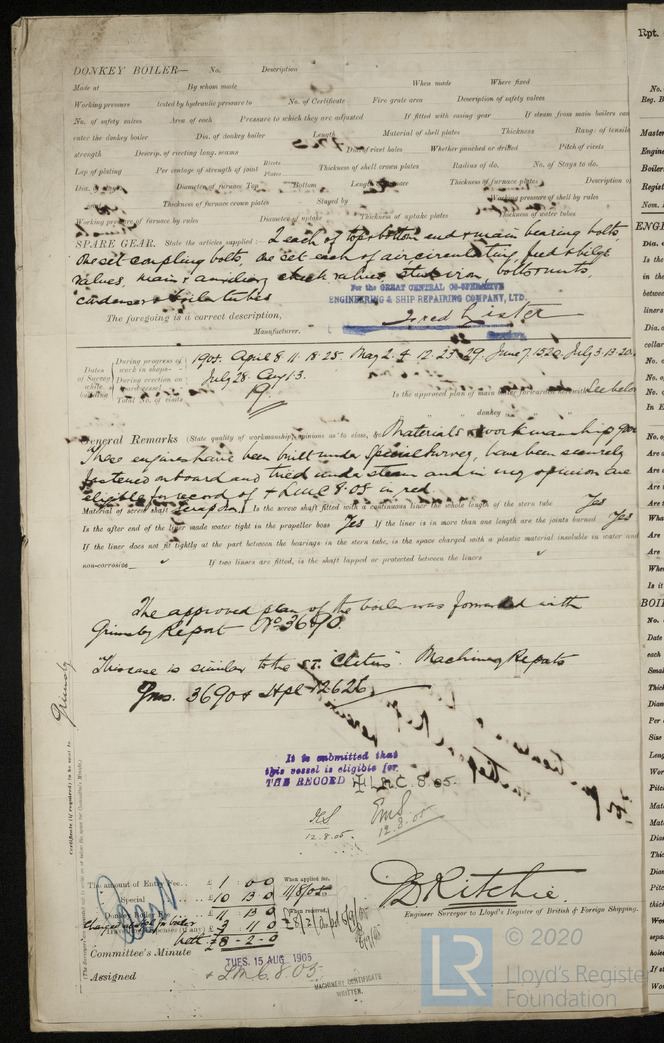 DONKEY BOILER— No. Description
Made at By whom made When made Where fixed
Working pressure tested by hydraulic pressure to No. of Certificate Fire grate area Description of safety valves
No. of safety valves Area of each Pressure to which they are adjusted If fitted with easing gear If steam from main boilers can
enter the donkey boiler Dia. of donkey boiler Length Material of shell plates Thickness Range of tensile
strength Descrip. of riveting long. seams Dia. of rivet holes Whether punched or drilled Pitch of rivets
Lap of plating Per centage of strength of joint Rivets Plates Thickness of shell crown plates Radius of do. No. of Stays to do.
Dia. of stays Diameter of furnace Top Bottom Length of furnace Thickness of furnace plates Description of
Thickness of furnace crown plates Stayed by Working pressure of shell by rules
Working pressure of furnace by rules Diameter of uptake Thickness of uptake plates Thickness of water tubes
SPARE GEAR. State the articles supplied:— 2 each of top & bottom end & main bearing bolts,
one set coupling bolts, one set each of air circulating, feed & bilge
valves, main & auxiliary check valves, iron, bolts & nuts,
condenser & boiler tubes
For the GREAT CENTRAL CO-OPERATIVE
ENGINEERING & SHIP REPAIRING COMPANY, LTD.
The foregoing is a correct description,
Fred Lister
Manufacturer.
Dates of Survey while building
During progress of work in shops - 1905. April 8. 11. 18. 25. May 2. 4. 12. 23. 29. June 7. 15. 20. July 3. 13. 20.
During erection on board vessel July 28. Aug 1. 3.
Total No. of visits 19.
Is the approved plan of main boiler forwarded herewith See below
" " " donkey " " "
General Remarks (State quality of workmanship, opinions as to class, &c. Materials & workmanship good
These engines have been built under Special Survey, have been securely
fastened on board and tried under steam and in my opinion are
eligible for record of + LMC 8.05 in red
Material of screw shaft Scrap Iron Is the screw shaft fitted with a continuous liner the whole length of the stern tube Yes
Is the after end of the liner made water tight in the propeller boss Yes If the liner is in more than one length are the joints burned Yes
If the liner does not fit tightly at the part between the bearings in the stern tube, is the space charged with a plastic material insoluble in water and
non-corrosive If two liners are fitted, is the shaft lapped or protected between the liners
The approved plan of the boiler was forwarded with
Grimsby Report No 3690.
This case is similar to the "Cletus". Machinery Reports
Gms. 3690 & Hpl 12626
It is submitted that
this vessel is eligible for
THE RECORD + LMC 8.05.
12.8.05
12.8.05
Grimsby
Certificate (if required) to be sent to
The amount of Entry Fee . . £ 1 0 0 When applied for,
Special £ 10 13 0 11/8/05
Donkey Boiler Fee £ 11 13 0 When received,
Travelling Expenses (if any) £ 3 11 0
£ 8 - 2 - 0
B Ritchie.
Engineer Surveyor to Lloyd's Register of British & Foreign Shipping.
Committee's Minute TUES. 15 AUG 1905
Assigned + LMC 8.05
MACHINERY CERTIFICATE
WRITTEN.
© 2020
LR Lloyd's Register
Foundation
Rpt.
No.
Reg. B
Master
Engine
Boiler
Regist
Nom.
ENGI
Dia. o
Is the
in the
betwee
liners
Dia. o
collar
No. o
No. o
No. o
In E
No. o
Are
Are
Are
Are t
Wha
Are
Are
Whe
Is it
BOIL
No.
Date
each
Smal
Thick
Diam
Per
Size
Leng
Wor
Pitch
Mate
Mate
Diam
Thic
Diam
Pitch
thick
Wor
sepa
holes
If st
Wor